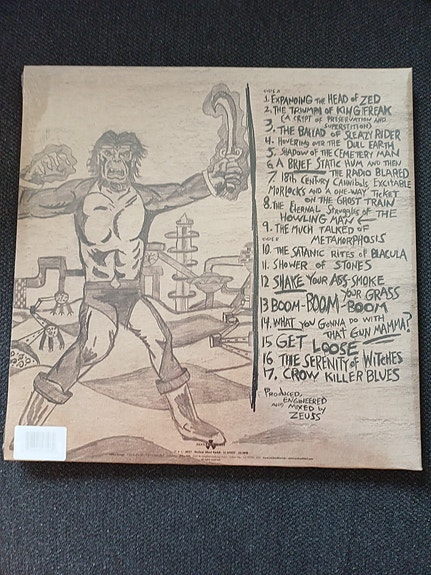 SIDE A
1. EXPANDING THE HEAD OF ZED
2. THE TRIUMPH OF KING FREAK
(A CRYPT OF PRESERVATION AND
SUPERSTITION)
3. THE BALLAD OF SLEAZY RIDER
4. HOVERING OVER THE DULL EARTH
5. SHADOW OF THE CEMETERY MAN
6. A BRIEF STATIC HUM AND THEN
THE RADIO BLARED
7. 18th CENTURY CANNIBALS, EXCITABLE
MORLOCKS AND A ONE-WAY TICKET
ON THE GHOST TRAIN
8. THE ETERNAL STRUGGLES OF THE
HOWLING MAN
9. THE MUCH TALKED OF
METAMORPHOSIS
SIDE B
10. THE SATANIC RITES OF BLACULA
11. SHOWER OF STONES
12 SHAKE YOUR ASS-SMOKE
YOUR GRASS
13 BOOM-BOOM-BOOM
14. WHAT YOU GONNA DO WITH
THAT GUN MAMMA?
15 GET LOOSE
16 THE SERENITY OF WITCHES
17. CROW KILLER BLUES
PRODUCED,
ENGINEERED
AND MIXED BY
ZEUSS